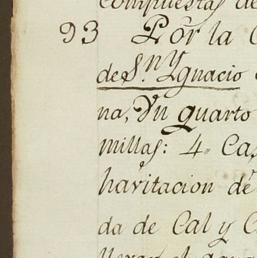 compuestas de
93 Pòr la C
de Sn. Ygnacio
na, Un quarto
millas: 4. Ca
havitacion dè
da de Cal y C